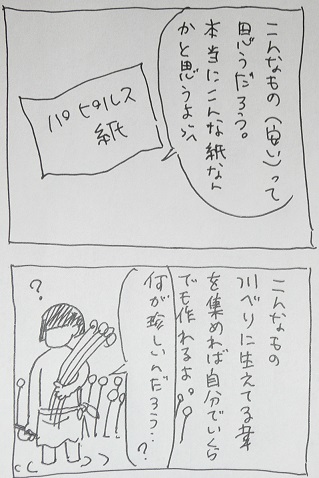 こんなもの(安い)って
思うだろう。
本当にこんな紙なん
かと思うよ
パピルス
紙
こんなもの
川べりに生えてる葦
を集めれば自分でいくら
でも作れるよ。
何が珍しいんだろう…?
?